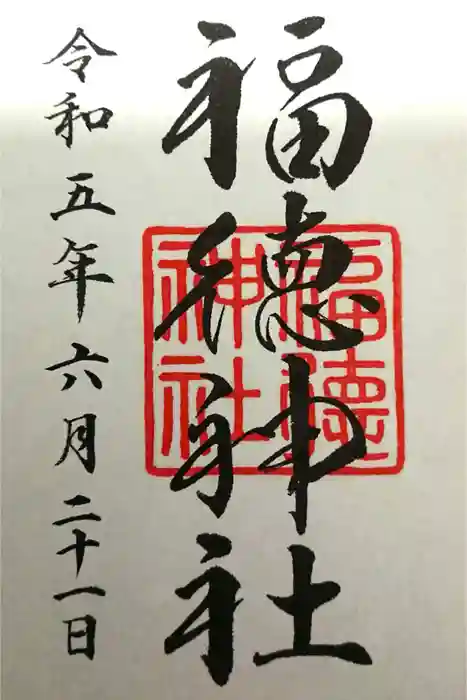 福徳神社
福徳神社
令和五年六月二十一日